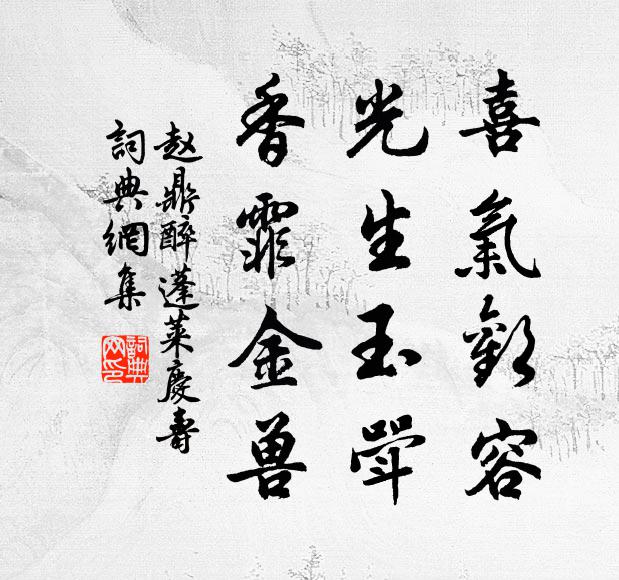 喜氣歡容
光生玉斝
香霏金兽
赵鼎醉蓬莱慶壽
詞典網集
詞典网印